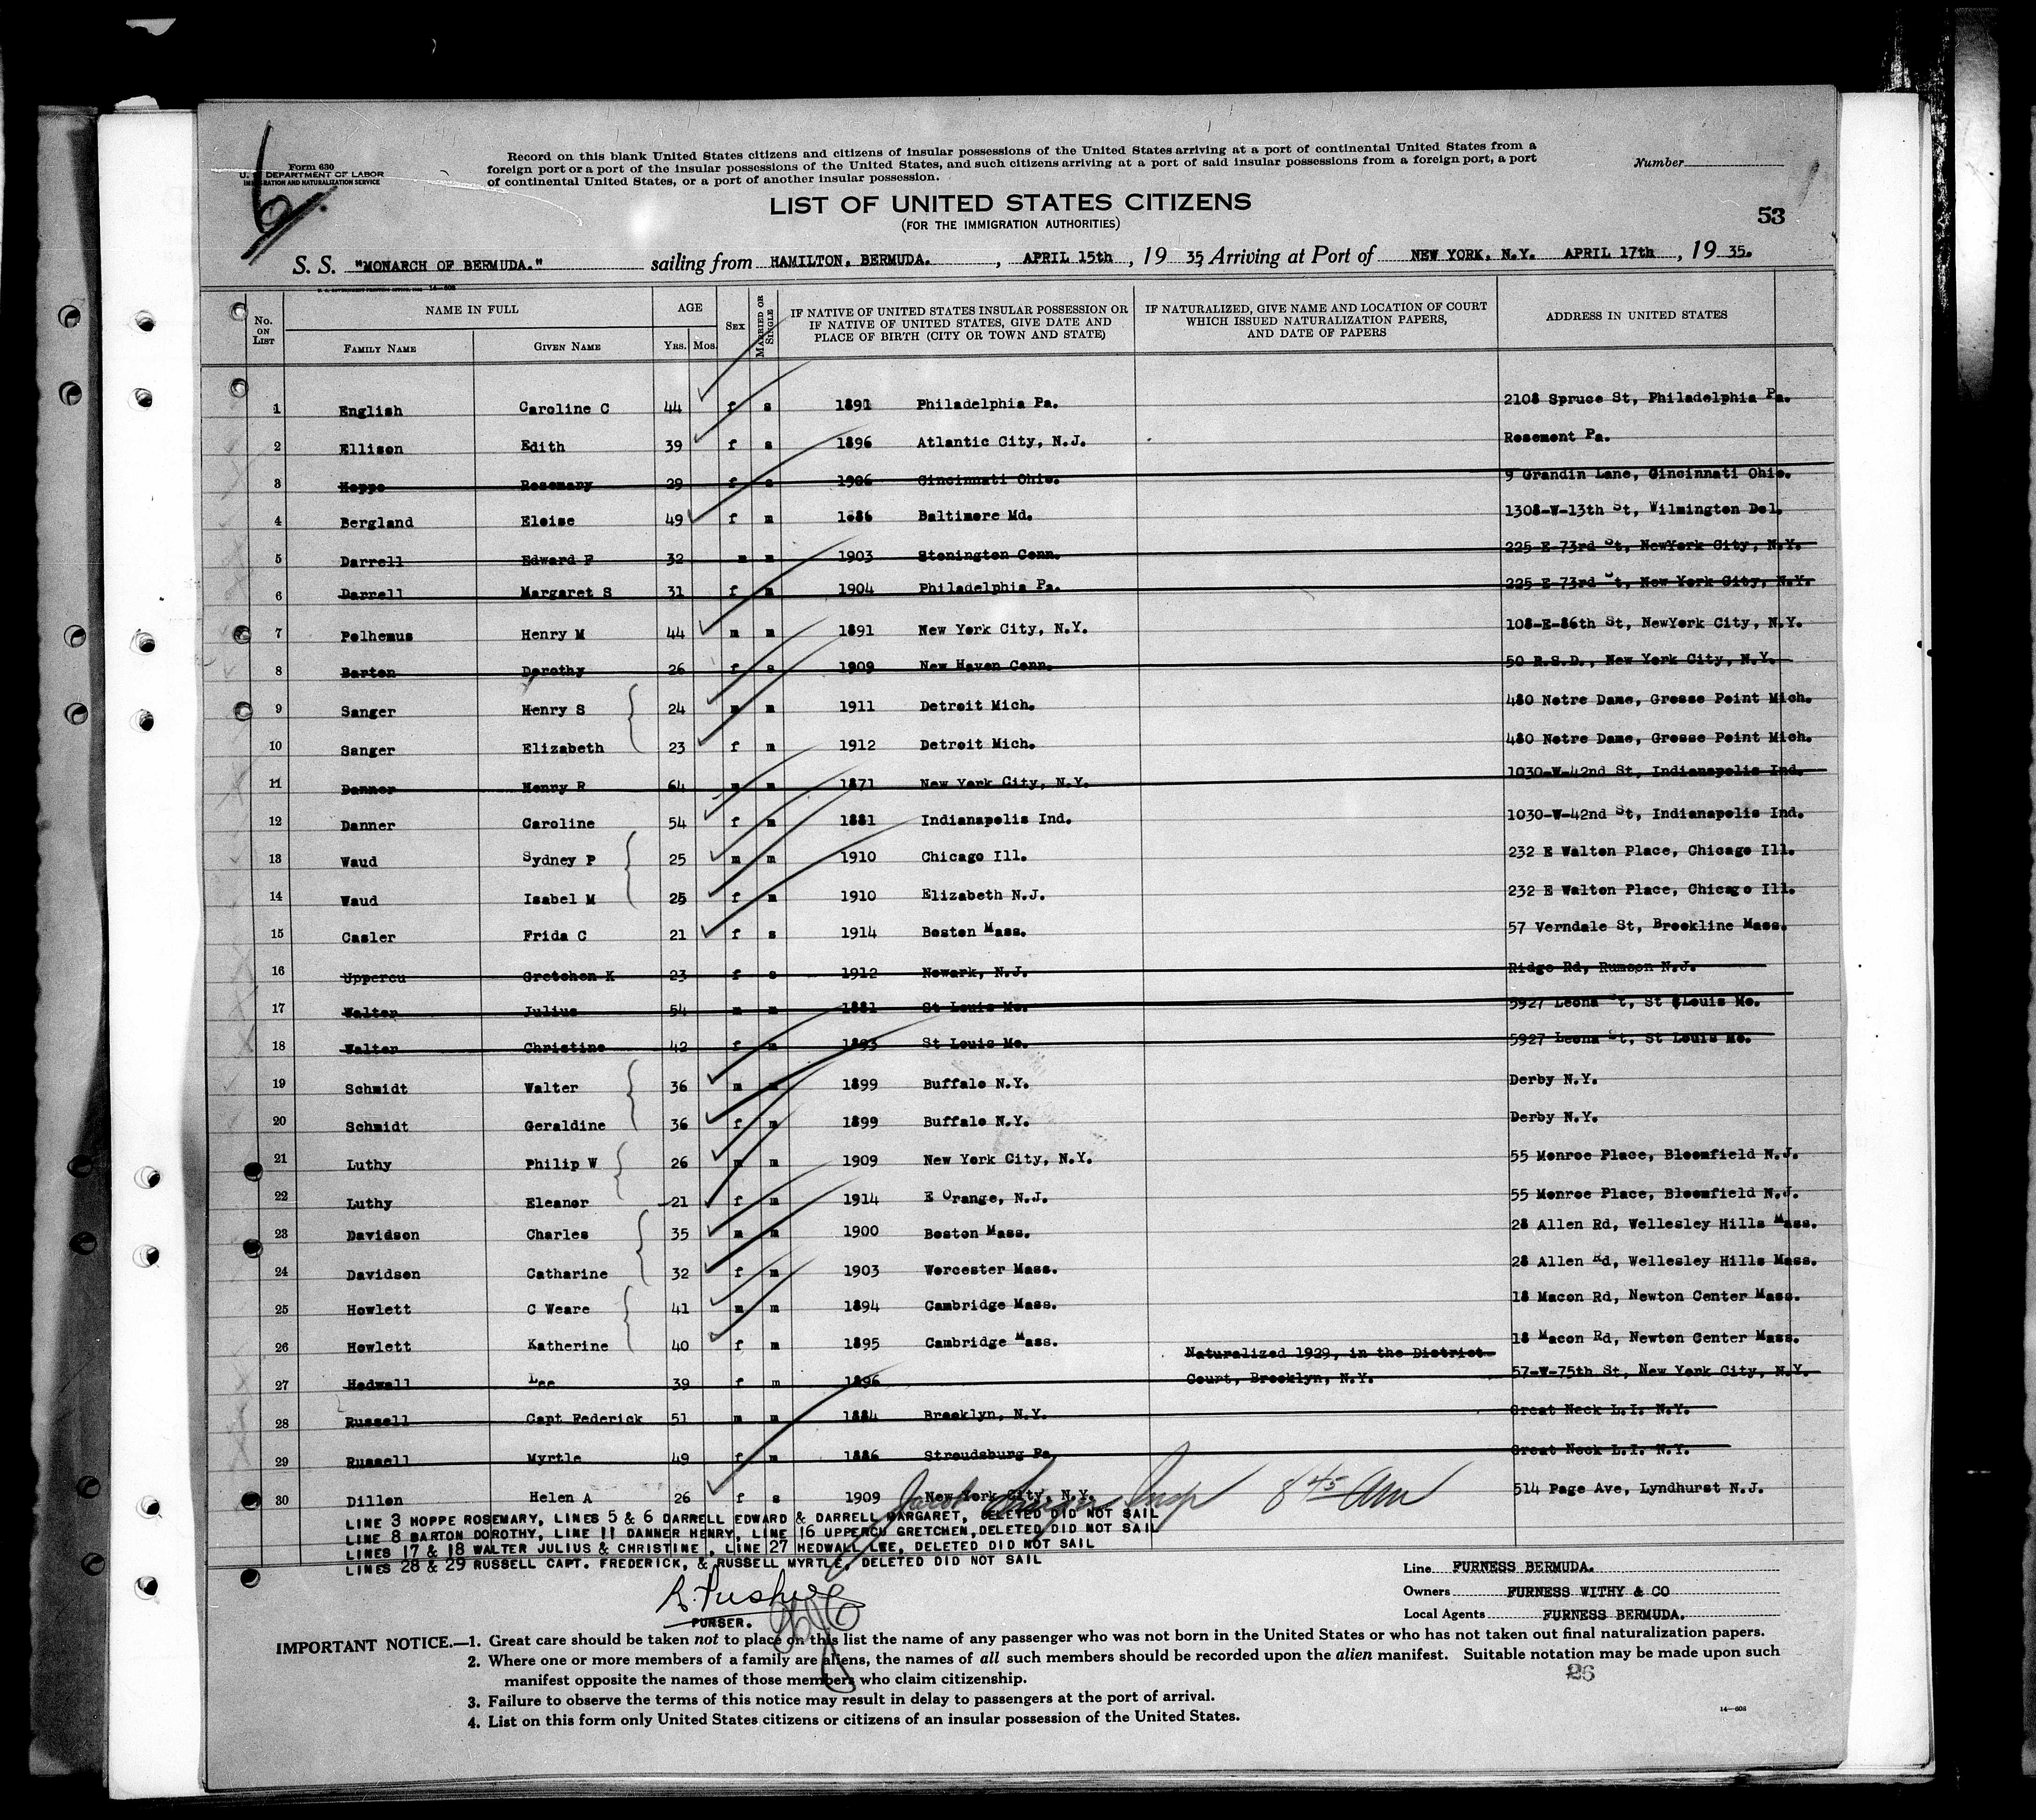 Form 630
U. S. DEPARTMENT OF LABOR
IMMIGRATION AND NATURALIZATION SERVICE
Record on this blank United States citizens and citizens of insular possessions of the United States arriving at a port of continental United States from a
foreign port or a port of the insular possessions of the United States, and such citizens arriving at a port of said insular possessions from a foreign port, a port
of continental United States, or a port of another insular possession.
Number
LIST OF UNITED STATES CITIZENS
(FOR THE IMMIGRATION AUTHORITIES)
53
S. S. "MONARCH OF BERMUDA." sailing from HAMILTON, BERMUDA. , APRIL 15th , 19 35, Arriving at Port of NEW YORK, N.Y. APRIL 17th , 19 35.
No. ON LIST NAME IN FULL FAMILY NAME GIVEN NAME AGE YRS. MOS. SEX MARRIED OR SINGLE IF NATIVE OF UNITED STATES INSULAR POSSESSION OR IF NATIVE OF UNITED STATES, GIVE DATE AND PLACE OF BIRTH (CITY OR TOWN AND STATE) IF NATURALIZED, GIVE NAME AND LOCATION OF COURT WHICH ISSUED NATURALIZATION PAPERS, AND DATE OF PAPERS ADDRESS IN UNITED STATES
1 English Caroline C 44 f s 1891 Philadelphia Pa. 2108 Spruce St, Philadelphia Pa.
2 Ellison Edith 39 f s 1896 Atlantic City, N.J. Rosemont Pa.
3 Hoppe Rosemary 29 f s 1906 Cincinnati Ohio. 9 Grandin Lane, Cincinnati Ohio.
4 Bergland Eloise 49 f m 1886 Baltimore Md. 1308-W-13th St, Wilmington Del.
5 Darrell Edward F 32 m m 1903 Stonington Conn. 225-E-73rd St, NewYork City, N.Y.
6 Darrell Margaret S 31 f m 1904 Philadelphia Pa. 225-E-73rd St, New York City, N.Y.
7 Polhemus Henry M 44 m m 1891 New York City, N.Y. 108-E-86th St, NewYork City, N.Y.
8 Barton Dorothy 26 f s 1909 New Haven Conn. 50 R.S.D., New York City, N.Y.
9 Sanger Henry S 24 m m 1911 Detroit Mich. 480 Notre Dame, Grosse Point Mich.
10 Sanger Elizabeth 23 f m 1912 Detroit Mich. 480 Notre Dame, Grosse Point Mich.
11 Danner Henry R 64 m m 1871 New York City, N.Y. 1030-W-42nd St, Indianapolis Ind.
12 Danner Caroline 54 f m 1881 Indianapolis Ind. 1030-W-42nd St, Indianapolis Ind.
13 Waud Sydney P 25 m m 1910 Chicago Ill. 232 E Walton Place, Chicago Ill.
14 Waud Isabel M 25 f m 1910 Elizabeth N.J. 232 E Walton Place, Chicago Ill.
15 Casler Frida C 21 f s 1914 Boston Mass. 57 Verndale St, Brookline Mass.
16 Uppercu Gretchen K 23 f s 1912 Newark, N.J. Ridge Rd, Rumson N.J.
17 Walter Julius 54 m m 1881 St Louis Mo. 5927 Leona St, St Louis Mo.
18 Walter Christine 42 f m 1893 St Louis Mo. 5927 Leona St, St Louis Mo.
19 Schmidt Walter 36 m m 1899 Buffalo N.Y. Derby N.Y.
20 Schmidt Geraldine 36 f m 1899 Buffalo N.Y. Derby N.Y.
21 Luthy Philip W 26 m m 1909 New York City, N.Y. 55 Monroe Place, Bloomfield N.J.
22 Luthy Eleanor 21 f m 1914 E Orange, N.J. 55 Monroe Place, Bloomfield N.J.
23 Davidson Charles 35 m m 1900 Boston Mass. 28 Allen Rd, Wellesley Hills Mass.
24 Davidson Catharine 32 f m 1903 Worcester Mass. 28 Allen Rd, Wellesley Hills Mass.
25 Howlett C Weare 41 m m 1894 Cambridge Mass. 18 Macon Rd, Newton Center Mass.
26 Howlett Katherine 40 f m 1895 Cambridge Mass. 18 Macon Rd, Newton Center Mass.
27 Hedwall Lee 39 f m 1896 Naturalized 1929, in the District Court, Brooklyn, N.Y. 57-W-75th St, New York City, N.Y.
28 Russell Capt Federick 51 m m 1884 Brooklyn, N.Y. Great Neck L.I. N.Y.
29 Russell Myrtle 49 f m 1886 Stroudsburg Pa Great Neck L.I. N.Y.
30 Dillon Helen A 26 f s 1909 New York City, N.Y. 514 Page Ave, Lyndhurst N.J.
Jacob Insp 8 45 Am
LINE 3 HOPPE ROSEMARY, LINES 5 & 6 DARRELL EDWARD & DARRELL MARGARET, DELETED DID NOT SAIL
LINE 8 BARTON DOROTHY, LINE 11 DANNER HENRY, LINE 16 UPPERCU GRETCHEN, DELETED DID NOT SAIL
LINES 17 & 18 WALTER JULIUS & CHRISTINE, LINE 27 HEDWALL LEE, DELETED DID NOT SAIL
LINES 28 & 29 RUSSELL CAPT. FREDERICK, & RUSSELL MYRTLE, DELETED DID NOT SAIL
PURSER.
Line FURNESS BERMUDA.
Owners FURNESS WITHY & CO
Local Agents FURNESS BERMUDA.
IMPORTANT NOTICE.—1. Great care should be taken not to place on this list the name of any passenger who was not born in the United States or who has not taken out final naturalization papers.
2. Where one or more members of a family are aliens, the names of all such members should be recorded upon the alien manifest. Suitable notation may be made upon such
manifest opposite the names of those members who claim citizenship.
3. Failure to observe the terms of this notice may result in delay to passengers at the port of arrival.
4. List on this form only United States citizens or citizens of an insular possession of the United States.
26
14—608